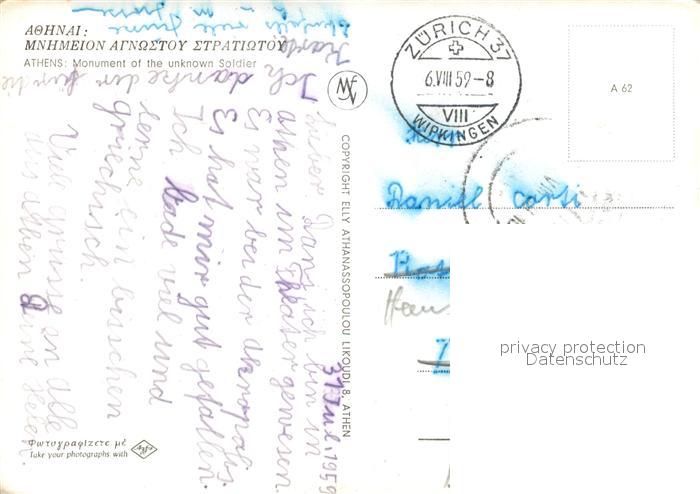 ΑΘΗΝΑΙ:
ΜΝΗΜΕΙΟΝ ΑΓΝΩΣΤΟΥ ΣΤΡΑΤΙΩΤΟΥ
ATHENS: Monument of the unknown Soldier
31 Jul. 1959
Lieber Dani, ich bin in
Athen im Theater gewesen.
Es war bei der Akropolis.
Es hat mir gut gefallen.
Ich bade viel und
lerne ein bisschen
griechisch.
Viele Grüsse an alle
aus Athen Deine Helen
Ich danke dir für die
Karte
Φωτογραφίζετε μέ
Take your photographs with
COPYRIGHT ELLY ATHANASSOPOULOU LIKOUDI 8, ATHEN
ZÜRICH 37
6.VIII 59-8
VIII
WIPKINGEN
A 62
Daniel Corti
privacy protection
Datenschutz